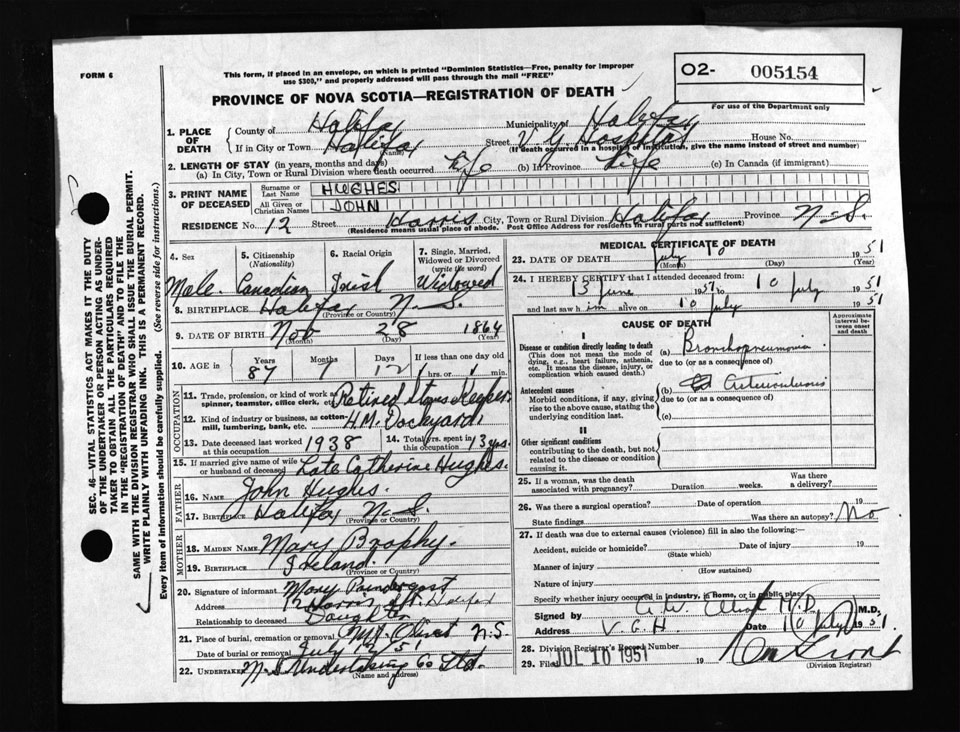 FORM 6
This form, if placed in an envelope, on which is printed "Dominion Statistics—Free, penalty for improper
use $300," and properly addressed will pass through the mail "FREE"
O2- 005154
For use of the Department only
PROVINCE OF NOVA SCOTIA—REGISTRATION OF DEATH
1. PLACE OF DEATH
County of Halifax Municipality of Halifax
If in City or Town Halifax (Name) Street V G Hospital House No.
(If death occurred in a hospital or institution, give the name instead of street and number)
2. LENGTH OF STAY (in years, months and days)
(a) In City, Town or Rural Division where death occurred Life (b) In Province Life (c) In Canada (if immigrant)
3. PRINT NAME OF DECEASED
Surname or Last Name HUGHES
All Given or Christian Names JOHN
RESIDENCE No. 12 Street Harris City, Town or Rural Division Halifax Province N.S.
(Residence means usual place of abode. Post Office Address for residents in rural parts not sufficient)
4. Sex 5. Citizenship (Nationality) 6. Racial Origin 7. Single, Married, Widowed or Divorced (write the word)
Male. Canadian Irish Widowed
8. BIRTHPLACE Halifax N.S.
(Province or Country)
9. DATE OF BIRTH Nob 28 1864
(Month) (Day) (Year)
10. AGE in Years Months Days If less than one day old
87 7 12 hrs. or
OCCUPATION
11. Trade, profession, or kind of work as spinner, teamster, office clerk, etc. Retired Stores Keeper
12. Kind of industry or business, as cotton-mill, lumbering, bank, etc. H.M. Dockyard.
13. Date deceased last worked at this occupation 1938 14. Total yrs. spent in this occupation 3 yrs.
15. If married give name of wife or husband of deceased Late Catherine Hughes.
FATHER
16. NAME John Hughes.
17. BIRTHPLACE Halifax N.S.
(Province or Country)
MOTHER
18. MAIDEN NAME Mary Brophy.
19. BIRTHPLACE Ireland.
(Province or Country)
20. Signature of informant Mary
Address 12 Harris St. Halifax
Relationship to deceased Daughter
21. Place of burial, cremation or removal Mt. Olivet N.S.
Date of burial or removal July 12/51
22. UNDERTAKER N.S Undertaking Co Ltd.
(Name and address)
MEDICAL CERTIFICATE OF DEATH
23. DATE OF DEATH July 10 1951
(Month) (Day) (Year)
24. I HEREBY CERTIFY that I attended deceased from:
15 June 1951 to 10 July 1951
and last saw him alive on 10 July 1951
CAUSE OF DEATH
Approximate interval between onset and death
I
Disease or condition directly leading to death (a) Bronchopneumonia
(This does not mean the mode of dying, e.g., heart failure, asthenia, etc. It means the disease, injury, or complication which caused death.)
due to (or as a consequence of)
Antecedent causes (b)
Morbid conditions, if any, giving rise to the above cause, stating the underlying condition last.
due to (or as a consequence of)
(c)
II
Other significant conditions
contributing to the death, but not related to the disease or condition causing it.
25. If a woman, was the death associated with pregnancy? Duration weeks. Was there a delivery?
26. Was there a surgical operation? Date of operation 19
State findings Was there an autopsy? No
27. If death was due to external causes (violence) fill in also the following:
Accident, suicide or homicide? Date of injury 19
(State which)
Manner of injury
(How sustained)
Nature of injury
Specify whether injury occurred in industry, in home, or in public place
Signed by M.D. M.D.
Address V.G.H. Date 10 July 1951
28. Division Registrar's Record Number
29. Filed JUL 10 1951 19
(Division Registrar)
SEC. 46—VITAL STATISTICS ACT MAKES IT THE DUTY
OF THE UNDERTAKER OR PERSON ACTING AS UNDER-
TAKER TO OBTAIN ALL THE PARTICULARS REQUIRED
IN THE "REGISTRATION OF DEATH" AND TO FILE THE
SAME WITH THE DIVISION REGISTRAR WHO SHALL ISSUE THE BURIAL PERMIT.
WRITE PLAINLY WITH UNFADING INK. THIS IS A PERMANENT RECORD.
Every item of information should be carefully supplied. (See reverse side for instructions.)